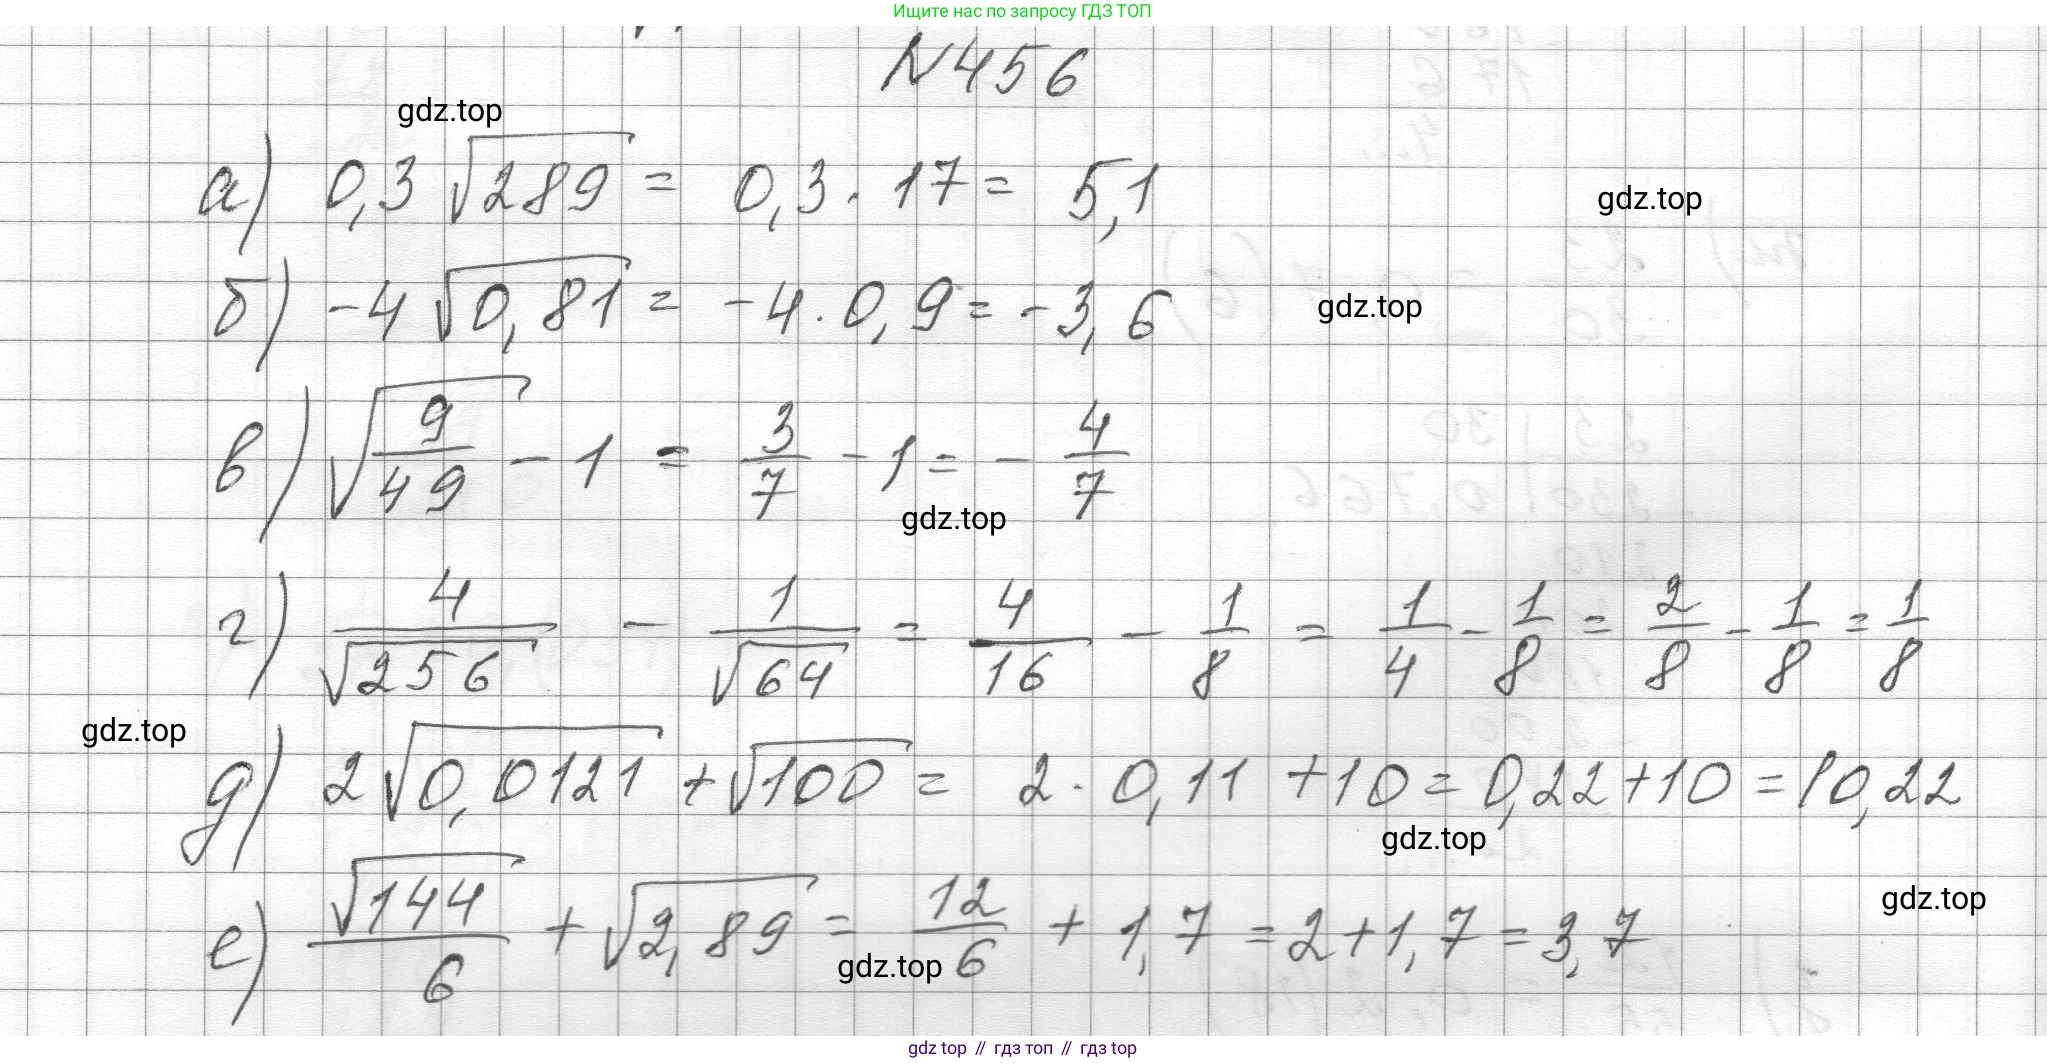 Ищите нас по запросу ГДЗ ТОП
N456
gdz.top
а) 0,3 √289 = 0,3 · 17 = 5,1
gdz.top
б) -4 √0,81 = -4 · 0,9 = -3,6
gdz.top
в) √(9/49) - 1 = 3/7 - 1 = - 4/7
gdz.top
г) 4/√256 - 1/√64 = 4/16 - 1/8 = 1/4 - 1/8 = 2/8 - 1/8 = 1/8
gdz.top
д) 2√0,0121 + √100 = 2 · 0,11 + 10 = 0,22 + 10 = 10,22
gdz.top
gdz.top
е) √144/6 + √2,89 = 12/6 + 1,7 = 2 + 1,7 = 3,7
gdz.top
gdz top // гдз топ // гдз top